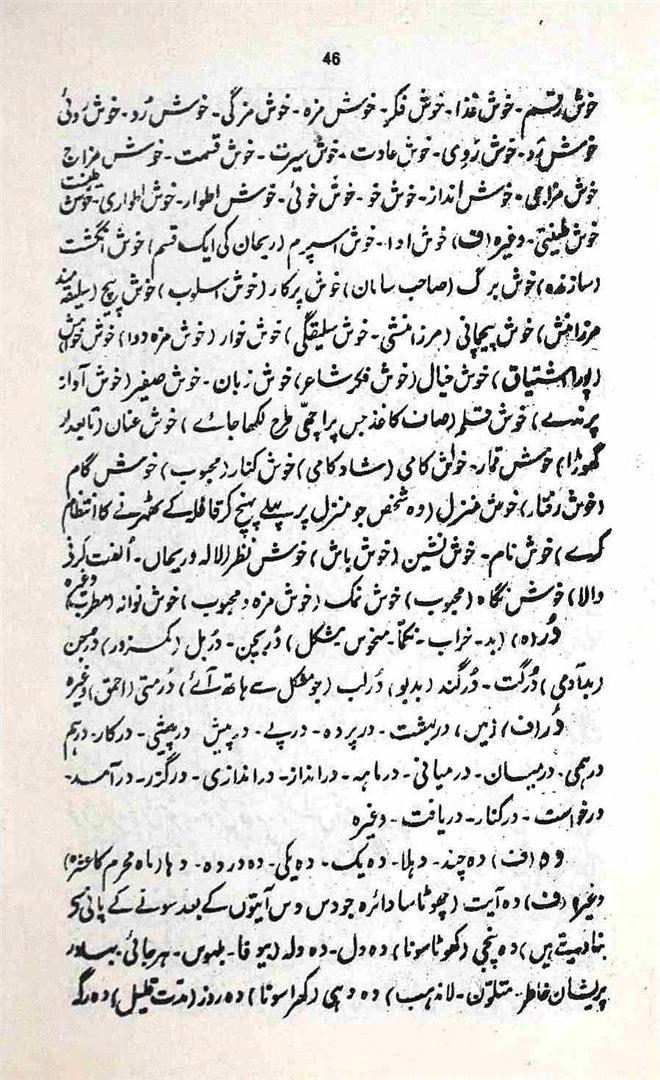 46
خوش رقم۔ خوش غذا۔ خوش فکر۔ خوش مزہ۔ خوش مزگی۔ خوش رُد۔ خوش رُدئی
خوش رَد۔ خوش رَوِی۔ خوش عادت۔ خوش سیرت۔ خوش قسمت۔ خوش مزاج
خوش مزاجی۔ خوش انداز۔ خوش خو۔ خوش خوئی۔ خوش اطوار۔ خوش اطواری۔ خوش طینت
خوش طینتی۔ وغیرہ (ف) خوش ادا۔ خوش اسپرم (ریحان کی ایک قسم) خوش انگشت
(سازندہ) خوش برگ (صاحب سامان) خوش پرکار (خوش اسلوب) خوش پیچ (سلیقہ مند
مرزا منش) خوش پیچانی (مرزا منشی۔ خوش سلیقگی) خوش خوار (خوش مزہ دوا) خوش خواہش
(پُر اشتیاق) خوش خیال (خوش فکر شاعر) خوش زبان۔ خوش صفیر (خوش آواز
پرندے) خوش قلم (صاف کاغذ جس پر اچھی طرح لکھا جائے) خوش عنان (تابعدار
گھوڑا) خوش قمار۔ خوش کامی (شاد کامی) خوش کنار (محبوب) خوش گام
(خوش رفتار) خوش منزل (وہ شخص جو منزل پر پہلے پہنچ کر قافلہ کے ٹھہرنے کا انتظام
کرے) خوش نام۔ خوش نشین (خوش باش) خوش نظر (لالہ و ریحاں۔ اُلفت کرنے
والا) خوش نگاہ (محبوب) خوش نمک (خوش مزہ و محبوب) خوش نوانہ (مطرب) وغیرہ
دُر (ہ) (بد۔ خراب۔ نکمّا۔ منحوس مشکل) دُربچن۔ دُربل (کمزور) دُرجن
(بدآدمی) دُرگت۔ دُرگند (بدبو) دُرلب (جو مشکل سے ہاتھ آئے) دُرمتی (احمق) وغیرہ
دَر (ف) (میں) دربہشت۔ درپردہ۔ درپے۔ درپیش۔ درپیشی۔ درکار۔ درہم
درہمی۔ درمیان۔ درمیانی۔ درماہہ۔ درانداز۔ دراندازی۔ درگزر۔ درآمد۔
درخواست۔ درکنار۔ دریافت۔ وغیرہ
دہ (ف) دہ چند۔ دہلا۔ دہ یک۔ دہ یکی۔ دہ در دہ۔ دہا (ماہ محرم کا عشرہ)
وغیرہ (ف) دہ آیت (چھوٹا سا دائرہ جو دس دس آیتوں کے بعد سونے کے پانی سے
بنا دیتے ہیں) دہ پنجی (کھوٹا سونا) دہ دل۔ دہ دلہ (بیوفا۔ بلہوس۔ ہرجائی۔ بہادر
پریشان خاطر۔ متلوّن۔ لامذہب) دہ دہی (کھرا سونا) دہ روز (مدّت قلیل) دہ رگہ